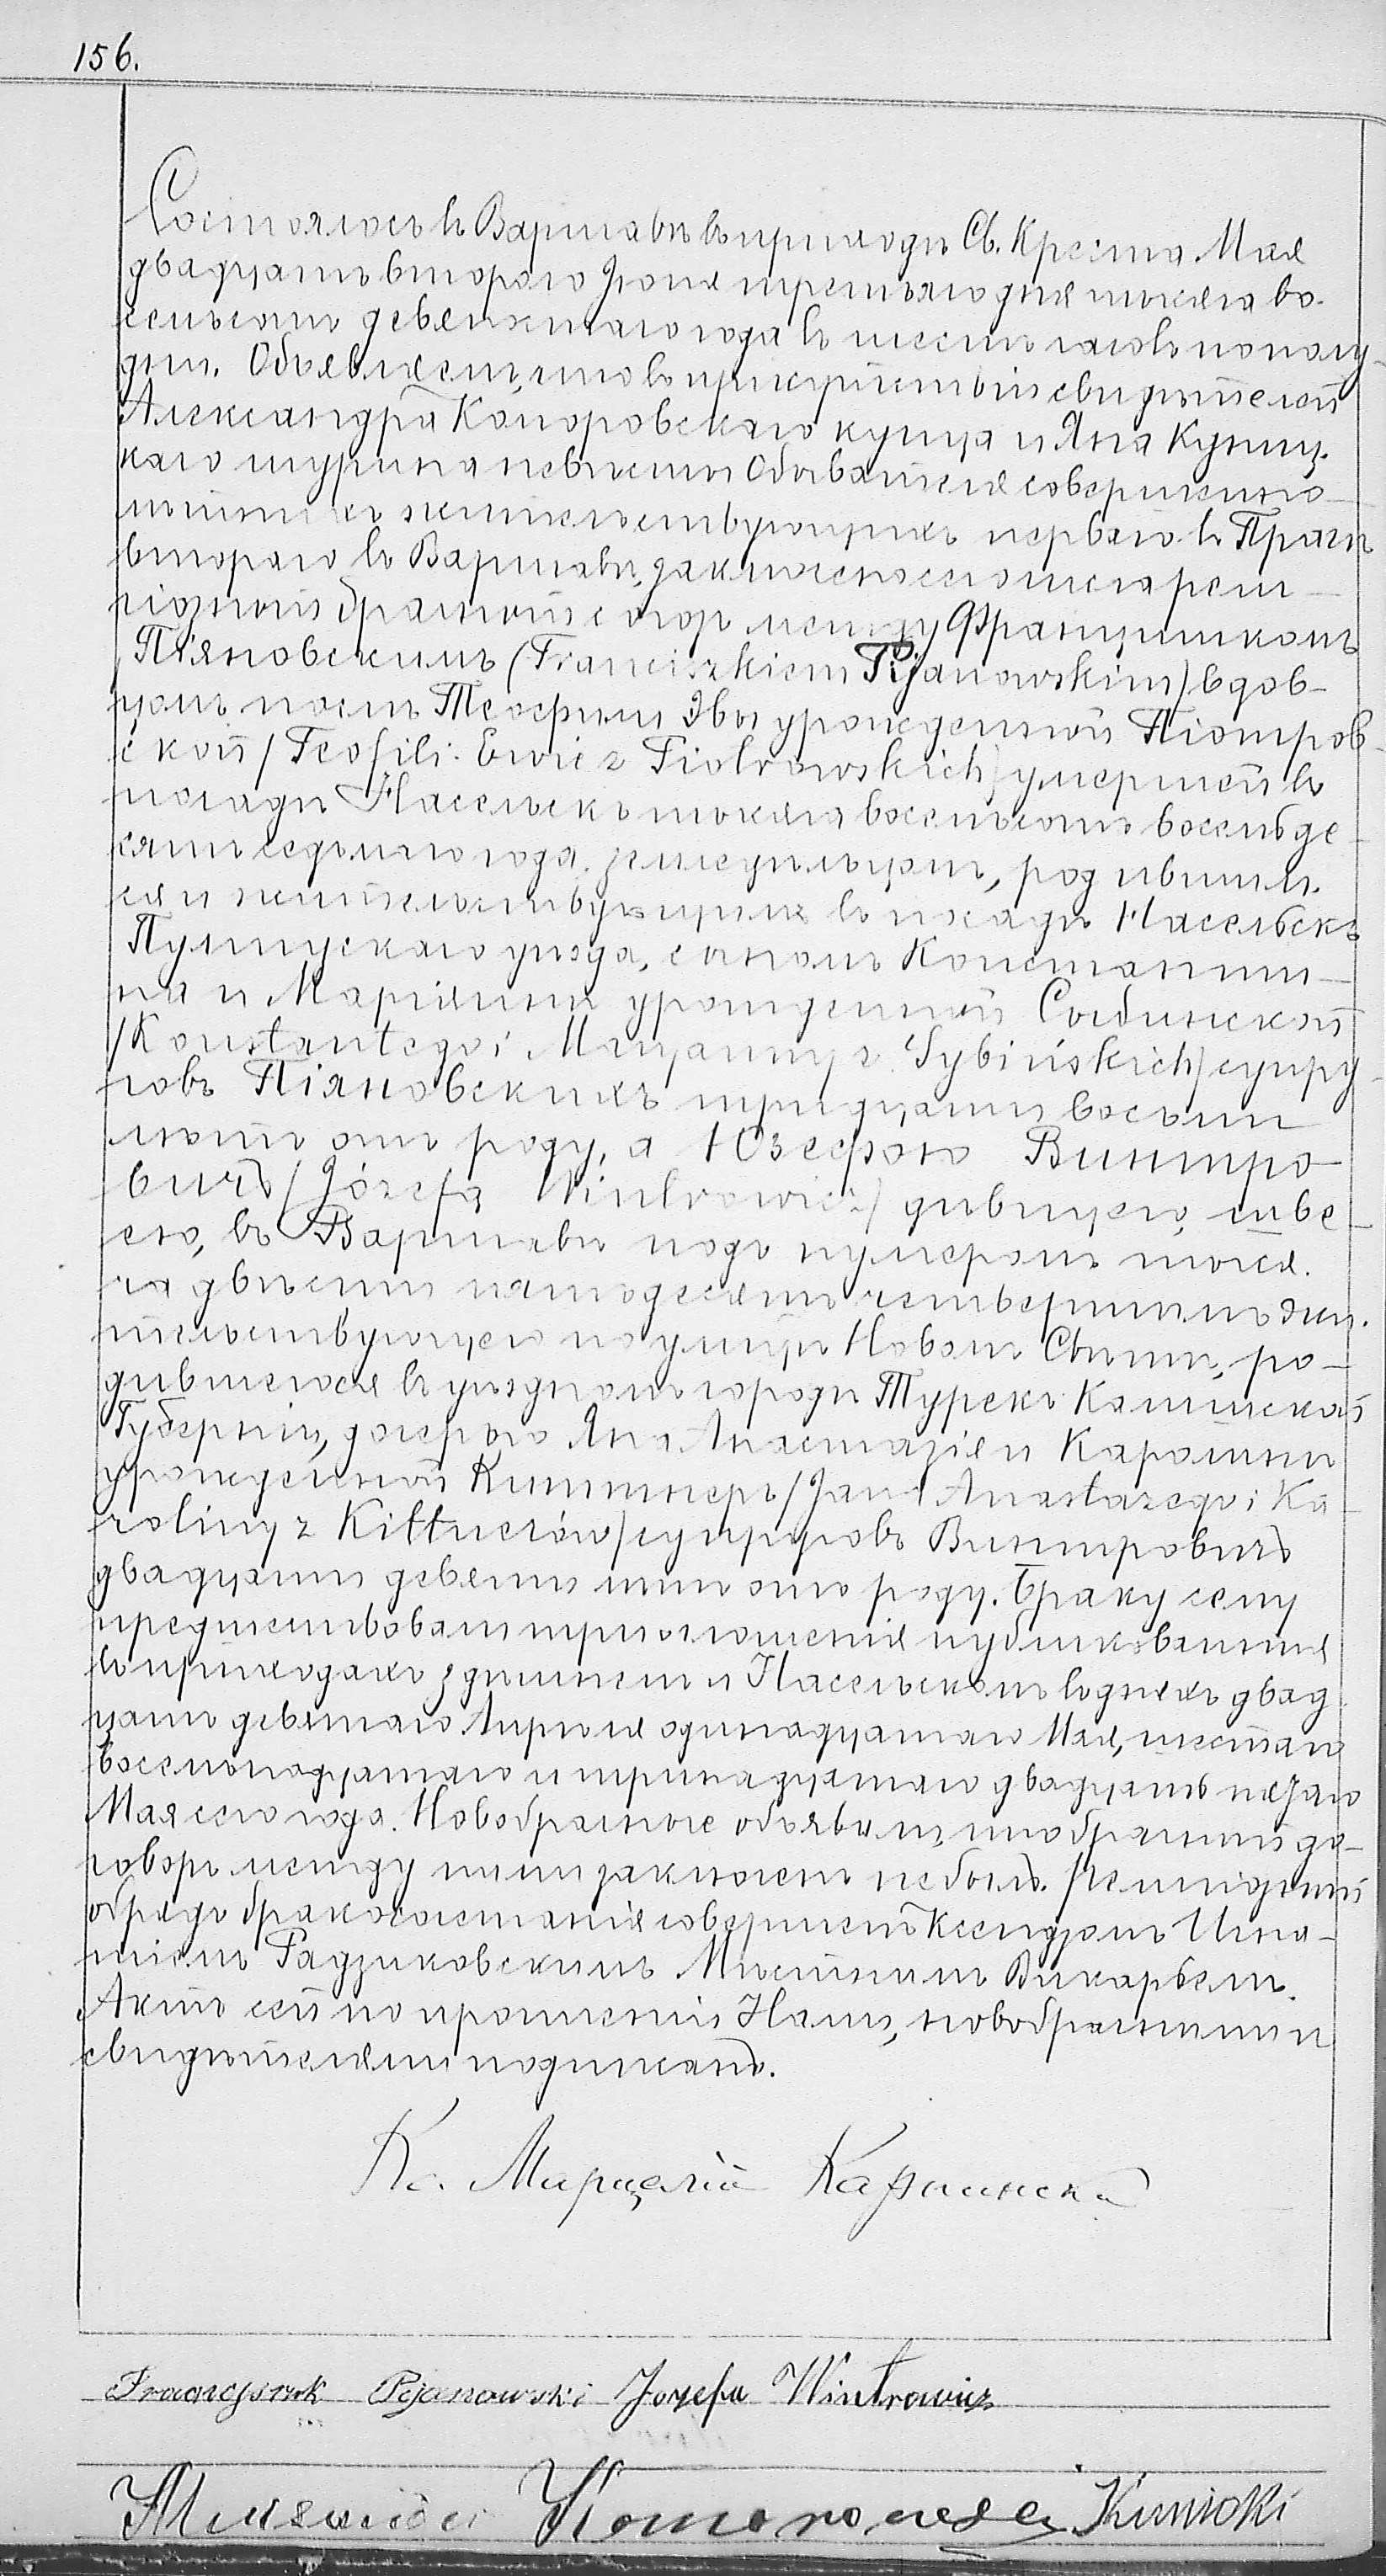 156.
Состоялось въ Варшавѣ въ приходѣ Св. Креста. Мая
двадцать втораго Іюня третьяго дня тысяча во-
семьсотъ девяностаго года въ шесть часовъ пополу-
дни. Объявляемъ, что въ присутствіи свидѣтелей
Александра Коморовскаго купца и Яна Куниц-
каго шурина невѣсты Обывателя совершенно-
лѣтнихъ жительствующихъ перваго въ Прагѣ
втораго въ Варшавѣ, заключенъ сего числа рели-
гіозный брачный союзъ между Францишкомъ
Піяновскимъ (Franciszkiem Pijanowskim) вдов-
цомъ послѣ Теофили Эвы урожденной Піотров-
ской / Teofili Ewie z Piotrowskich / умершей въ
посадѣ Насельскъ тысяча восемьсотъ восемьде-
сятъ седьмого года. земледѣльцемъ, родившим-
ся и жительствующимъ въ посадѣ Насельскъ
Пултускаго уѣзда, сыномъ Константи-
на и Маріянны урожденной Сыбинской
/ Konstantego i Maryanny z Sybińskich / супру-
говъ Піяновскихъ тридцати восьми
лѣтъ отъ роду, а Юзефою Винтро-
вичъ / Józefą Wintrowicz / дѣвицею, шве-
ею, въ Варшавѣ подъ нумеромъ тыся-
ча двѣсти пятьдесятъ четвертымъ жи-
тельствующею по улицѣ Новомъ Свѣтѣ, ро-
дившеюся въ уѣздномъ городѣ Турекъ Калишской
Губерніи, дочерью Яна Анастазія и Каролины
урожденной Киттнеръ / Jana Anastazego i Ka-
roliny z Kittnerów / супруговъ Винтровичъ
двадцати девяти лѣтъ отъ роду. Браку сему
предшествовали три оглашенія публикованныя
въ приходахъ здѣшнемъ и Насельскомъ въ дняхъ двад-
цать девятаго Апрѣля одинадцатаго Мая, шестаго
восемнадцатаго и тринадцатаго двадцать пятаго
Мая сего года. Новобрачные объявили, что брачный до-
говоръ между ними заключенъ не былъ. Религіозный
обрядъ бракосочетанія совершенъ Ксендзомъ Игна-
тіемъ Гадзиковскимъ Мѣстнымъ Викаріемъ.
Актъ сей по прочтеніи Нами, новобрачными и
свидѣтелями подписанъ.
Кс. Марцелій
Franciszek Pijanowski Jozefa Wintrowicz
Kunicki